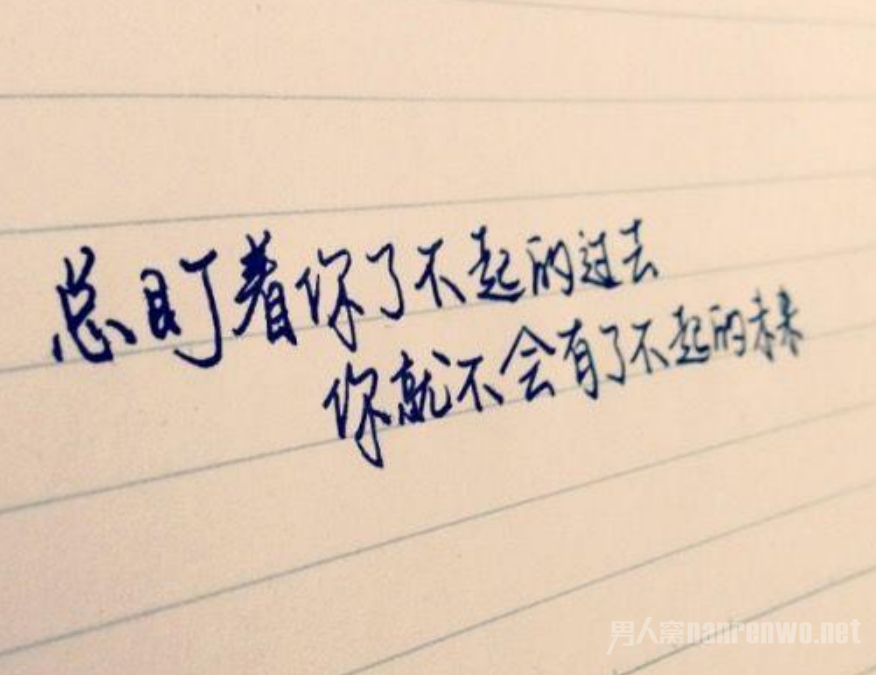 总盯着你了不起的过去
你就不会有了不起的未来
男人窝nanrenwo.net